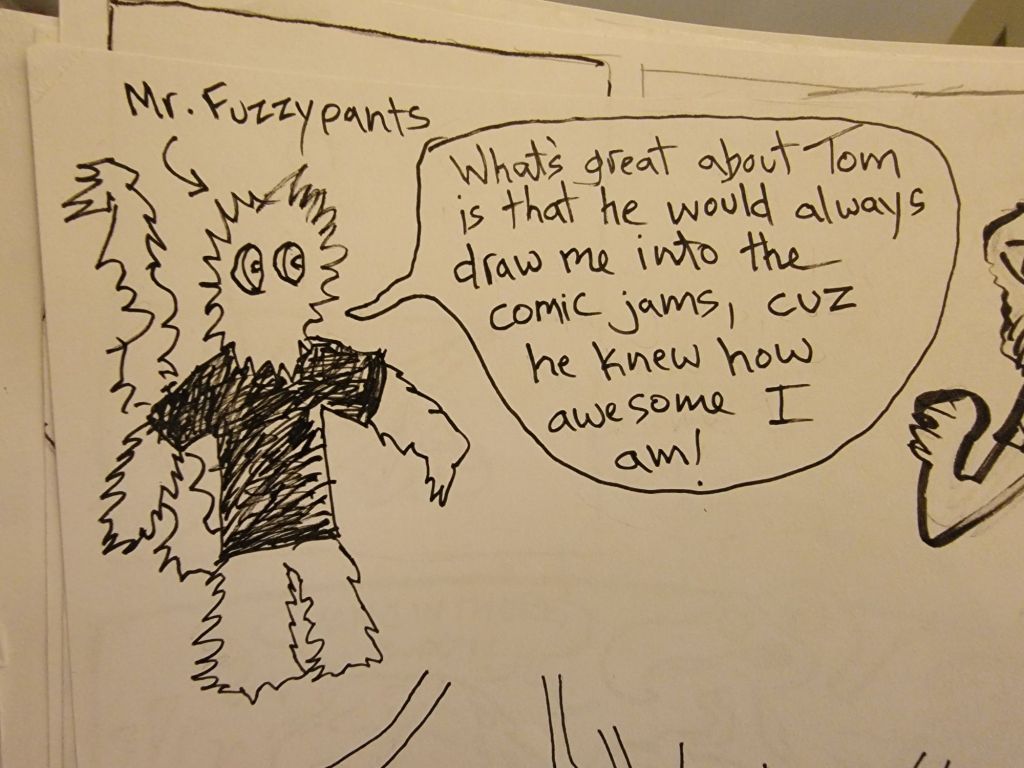 Mr. Fuzzypants
What's great about Tom
is that he would always
draw me into the
comic jams, cuz
he knew how
awesome I
am!